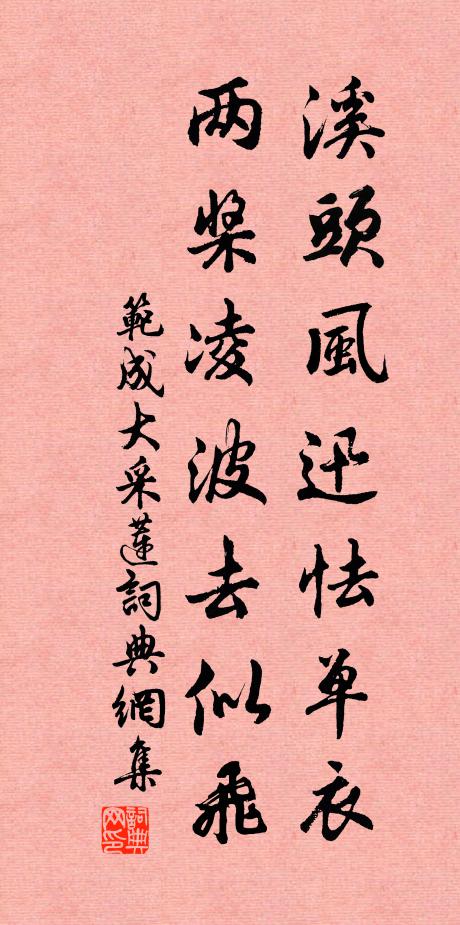 溪頭風迅怯单衣
两槳凌波去似飛
範成大采蓮詞典網集
詞典网印